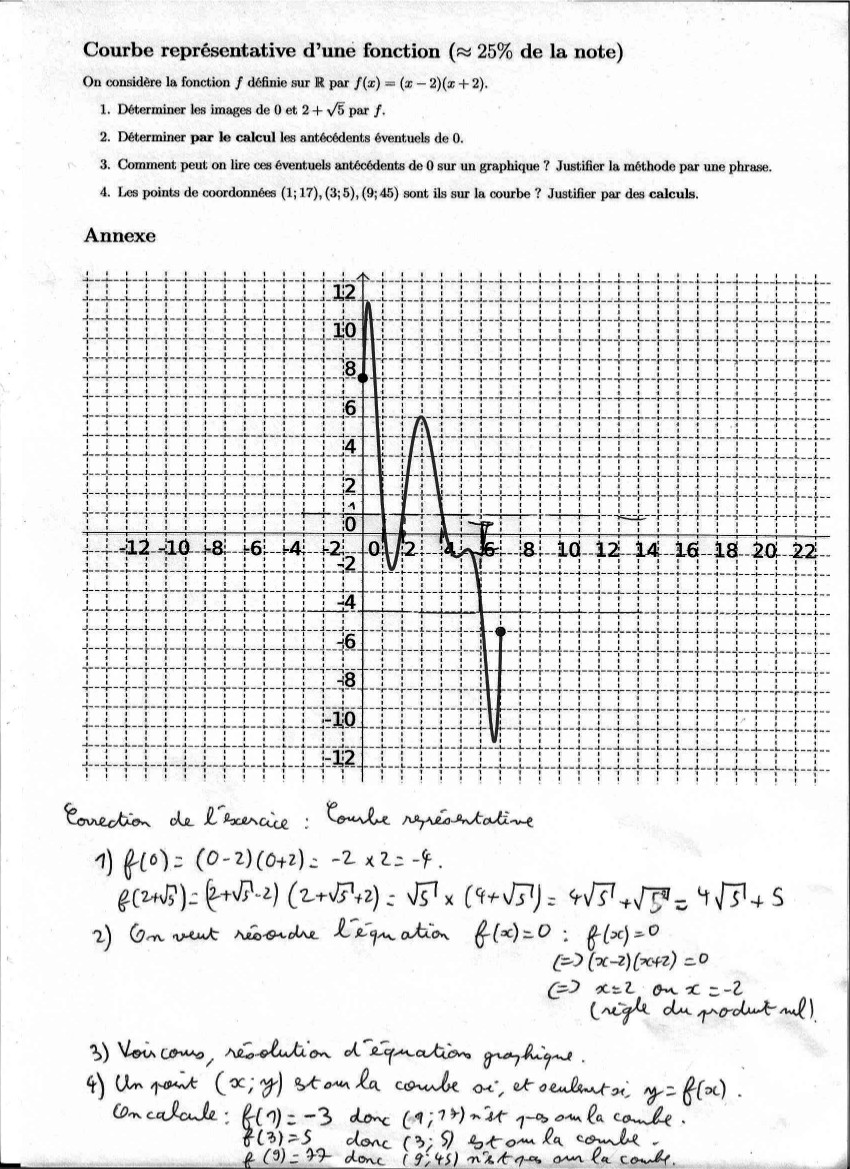 Courbe représentative d'une fonction (≈ 25% de la note)
On considère la fonction f définie sur ℝ par f(x) = (x − 2)(x + 2).
1. Déterminer les images de 0 et 2 + √5 par f.
2. Déterminer par le calcul les antécédents éventuels de 0.
3. Comment peut on lire ces éventuels antécédents de 0 sur un graphique ? Justifier la méthode par une phrase.
4. Les points de coordonnées (1; 17), (3; 5), (9; 45) sont ils sur la courbe ? Justifier par des calculs.
Annexe
12
10
8
6
4
2
1
0
-12 -10 -8 -6 -4 -2 0 2 4 6 8 10 12 14 16 18 20 22
-2
-4
-6
-8
-10
-12
Correction de l'exercice : Courbe représentative
1) f(0) = (0-2)(0+2) = -2 x 2 = -4.
f(2+√5) = (2+√5-2) (2+√5+2) = √5 x (4+√5) = 4√5 + √5² = 4√5 + 5
2) On veut résoudre l'équation f(x)=0 : f(x)=0
(=) (x-2)(x+2) =0
(=) x=2 ou x=-2
(règle du produit nul).
3) Voir cours, résolution d'équations graphique.
4) Un point (x; y) est sur la courbe si, et seulement si, y = f(x).
On calcule : f(1) = -3 donc (1; 17) n'est pas sur la courbe.
f(3) = 5 donc (3; 5) est sur la courbe.
f(9) = 77 donc (9; 45) n'est pas sur la courbe.